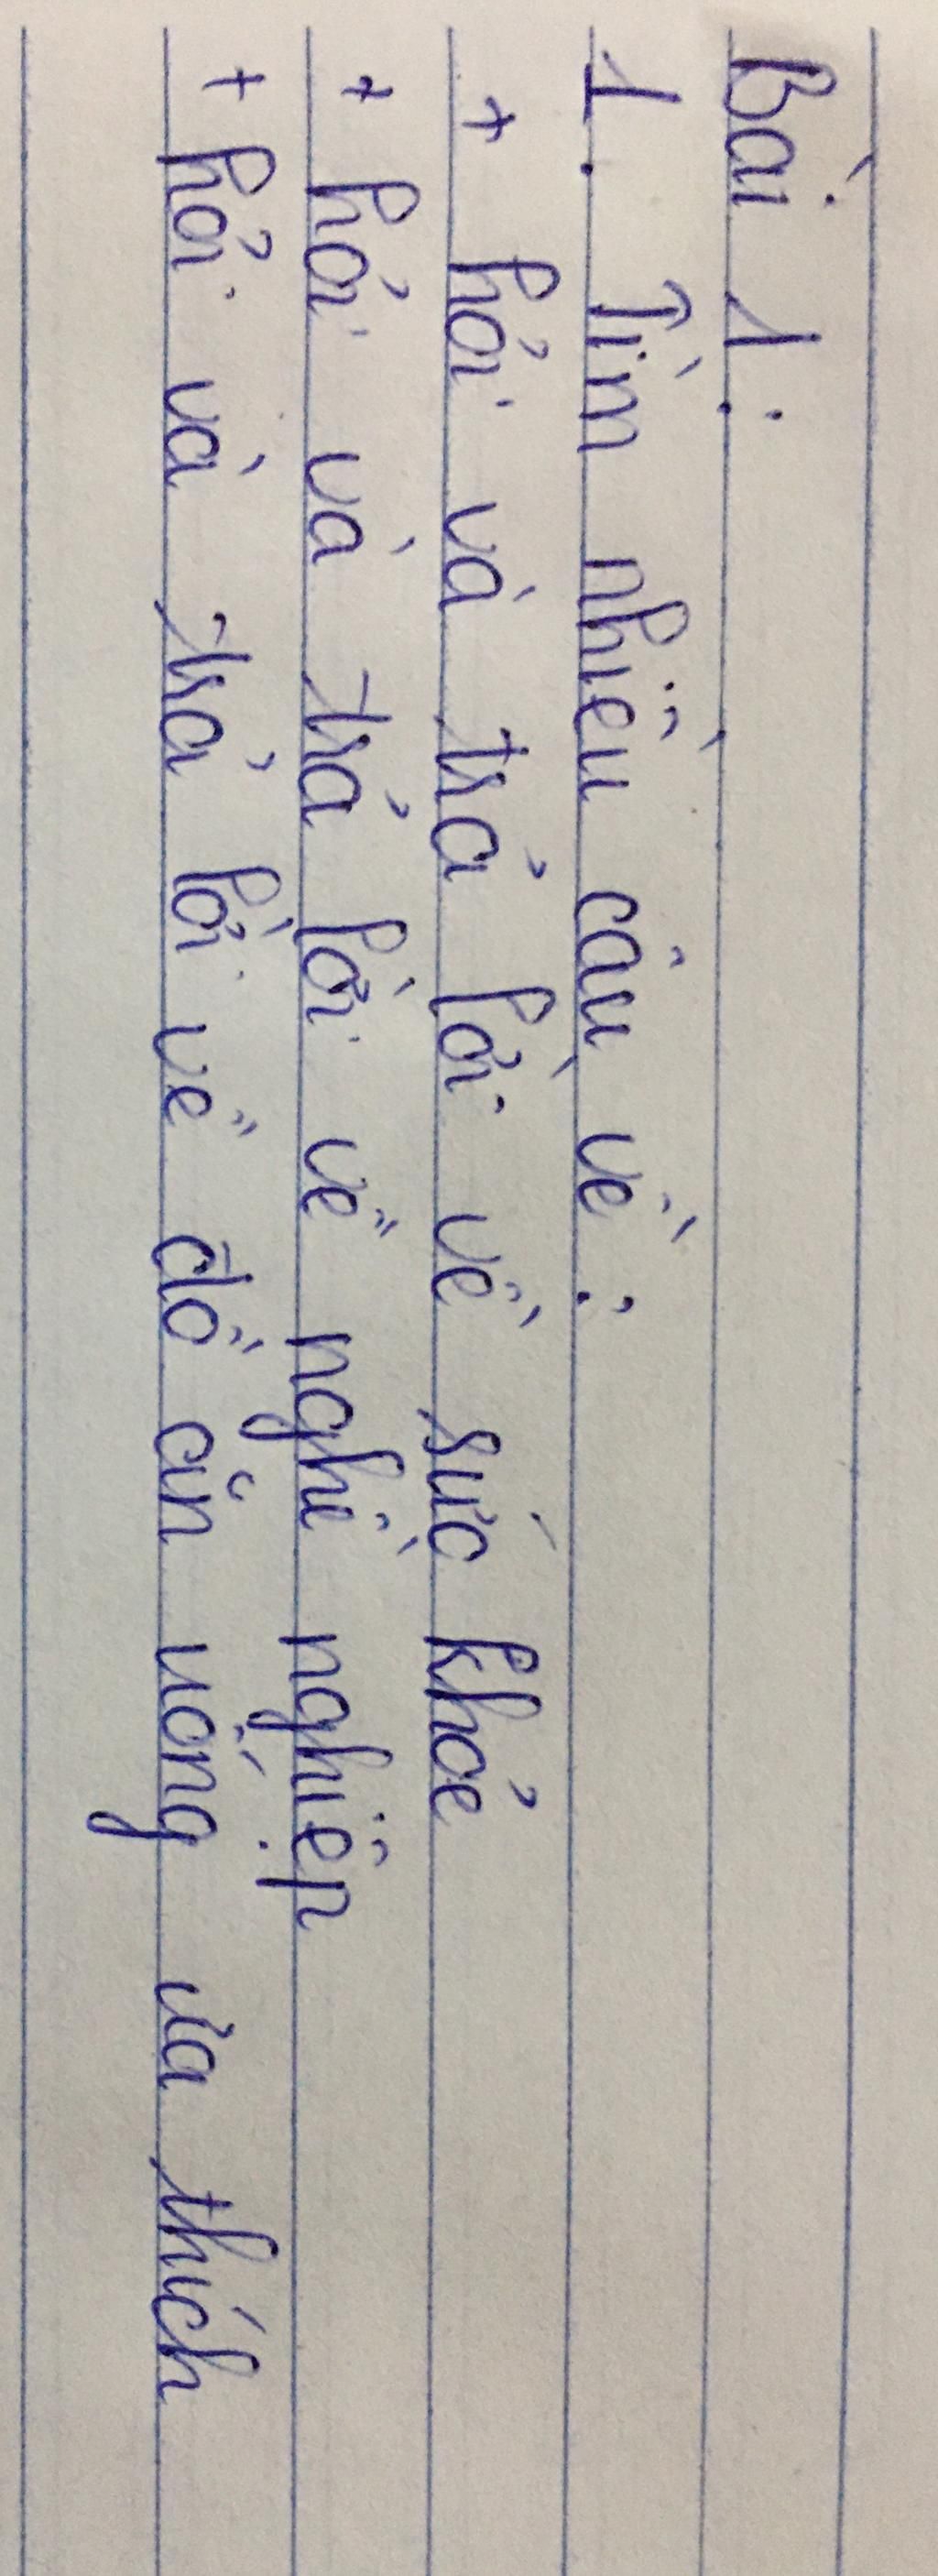 Bài 1:
1. Tìm nhiều câu về:
+ hỏi và trả lời về sức khỏe
+ hỏi và trả lời về nghề nghiệp
+ hỏi và trả lời về đồ ăn uống ưa thích